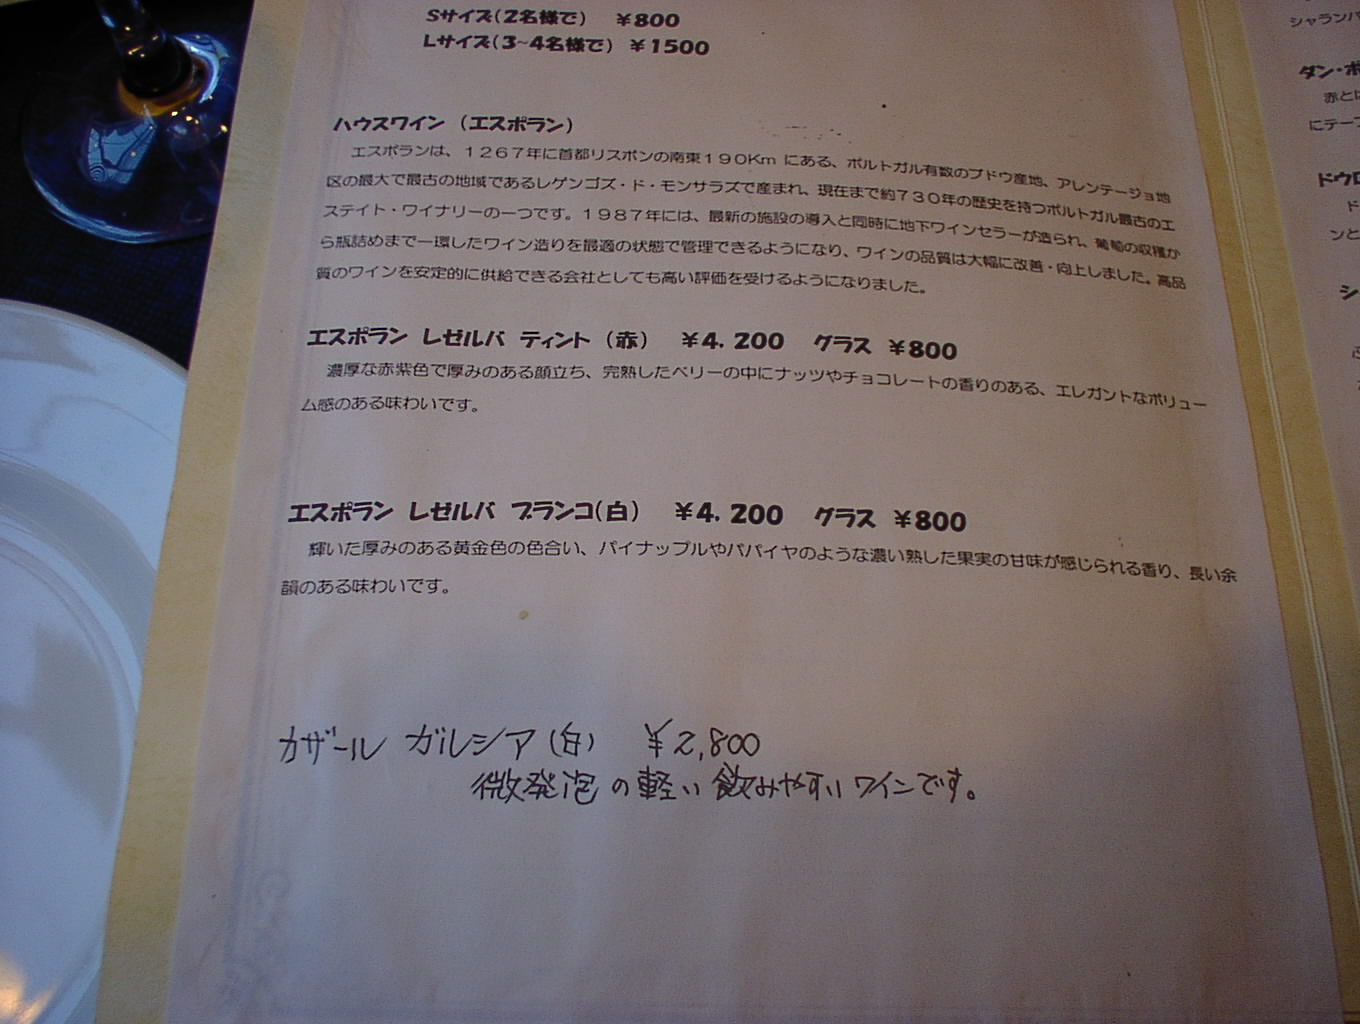 Sサイズ(2名様で) ￥800
Lサイズ(3~4名様で) ￥1500
ハウスワイン (エスポラン)
エスポランは、1267年に首都リスボンの南東190Km にある、ポルトガル有数のブドウ産地、アレンテージョ地
区の最大で最古の地域であるレゲンゴズ・ド・モンサラズで産まれ、現在まで約730年の歴史を持つポルトガル最古のエ
ステイト・ワイナリーの一つです。1987年には、最新の施設の導入と同時に地下ワインセラーが造られ、葡萄の収穫か
ら瓶詰めまで一環したワイン造りを最適の状態で管理できるようになり、ワインの品質は大幅に改善・向上しました。高品
質のワインを安定的に供給できる会社としても高い評価を受けるようになりました。
エスポラン レゼルバ ティント (赤) ￥4.200 グラス ￥800
濃厚な赤紫色で厚みのある顔立ち、完熟したベリーの中にナッツやチョコレートの香りのある、エレガントなボリュー
ム感のある味わいです。
エスポラン レゼルバ ブランコ(白) ￥4.200 グラス ￥800
輝いた厚みのある黄金色の色合い、パイナップルやパパイヤのような濃い熟した果実の甘味が感じられる香り、長い余
韻のある味わいです。
カザール ガルシア(白) ￥2,800
微発泡の軽い飲みやすいワインです。
シャランバ
ダン・ポ
赤とは
にテーブ
ドウロ
ド
ンと
シ